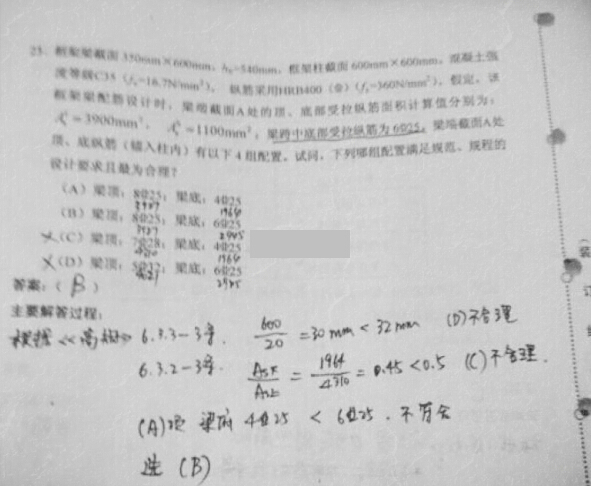 25. 框架梁截面350mm×600mm，h₀=540mm，框架柱截面600mm×600mm，混凝土强
度等级C35（fc=16.7N/mm²），纵筋采用HRB400（Φ）（fy=360N/mm²），假定，该
框架梁配筋设计时，梁端截面A处的顶、底部受拉纵筋面积计算值分别为：
=3900mm²，=1100mm²；梁跨中底部受拉纵筋为6Φ25。梁端截面A处
顶、底纵筋（锚入柱内）有以下4组配置。试问，下列哪组配置满足规范、规程的
设计要求且最为合理？
（A）梁顶：8Φ25；梁底：4Φ25
3927 1964
（B）梁顶：8Φ25；梁底：6Φ25
3927 2945
×（C）梁顶：7Φ28；梁底：4Φ25
4310 1964
×（D）梁顶：5Φ32；梁底：6Φ25
2945
答案：（B）
主要解答过程：
根据《高规》6.3.3-3条. 600/20 =30mm<32mm (D)不合理
6.3.2-3条. = 1964/4310 =0.45<0.5 (C)不合理.
(A)项 梁底 4Φ25 < 6Φ25. 不符合
选 (B)